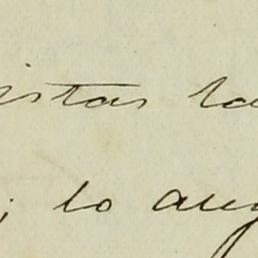 istas la
; lo aug